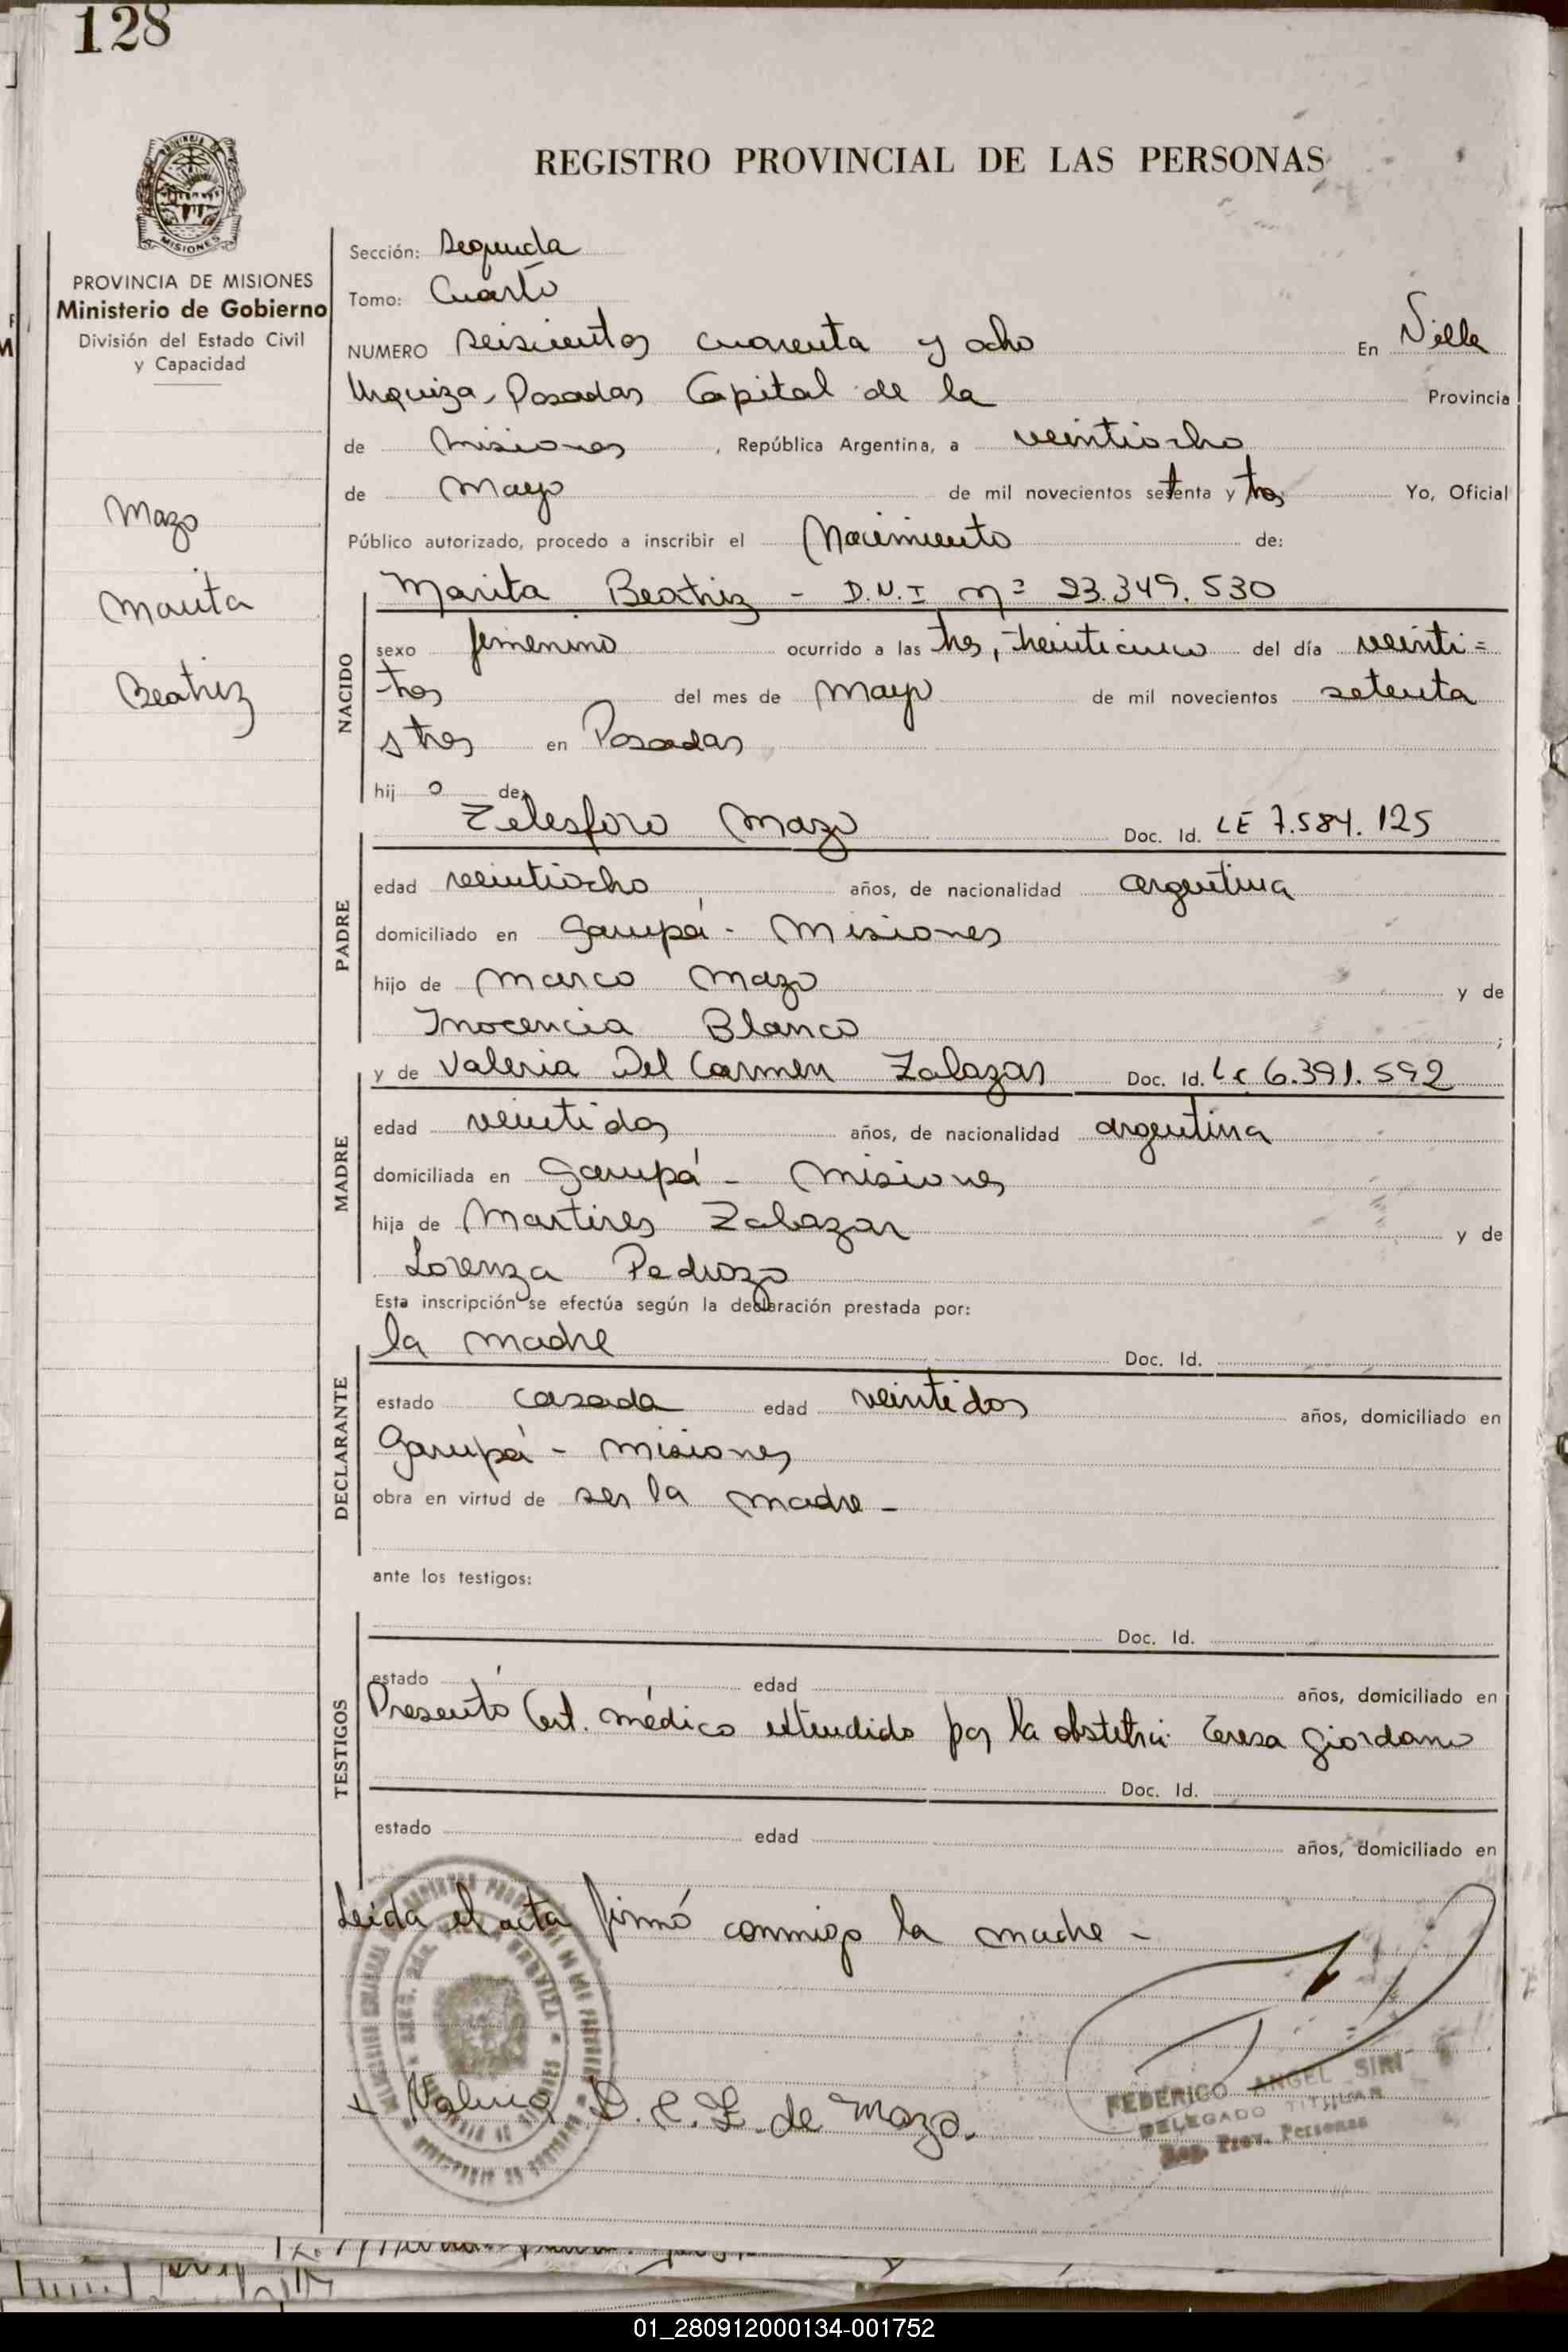 128
REGISTRO PROVINCIAL DE LAS PERSONAS
PROVINCIA DE MISIONES
MISIONES
PROVINCIA DE MISIONES
Ministerio de Gobierno
División del Estado Civil
y Capacidad
Mazo
Marita
Beatriz
Sección: Segunda
Tomo: Cuarto
NUMERO seiscientos cuarenta y ocho En Villa
Urquiza, Posadas Capital de la Provincia
de Misiones, República Argentina, a veintiocho
de Mayo de mil novecientos setenta y tres Yo, Oficial
Público autorizado, procedo a inscribir el Nacimiento de:
NACIDO
Marita Beatriz - D.N.I nº 23.349.530
sexo femenino ocurrido a las tres, treinticinco del día veinti=
tres del mes de Mayo de mil novecientos setenta
y tres en Posadas
hij o de:
PADRE
Telesforo Mazo Doc. Id. LE 7.584.125
edad veintiocho años, de nacionalidad argentina
domiciliado en Garupá - Misiones
hijo de Marco Mazo y de
Inocencia Blanco ;
MADRE
y de Valeria Del Carmen Zalazar Doc. Id. LC 6.391.592
edad veintidos años, de nacionalidad argentina
domiciliada en Garupá - Misiones
hija de Martires Zalazar y de
Lorenza Pedrozo
Esta inscripción se efectúa según la declaración prestada por:
DECLARANTE
la madre Doc. Id.
estado casada edad veintidos años, domiciliado en
Garupá - Misiones
obra en virtud de ser la madre -
ante los testigos:
TESTIGOS
Doc. Id.
estado edad años, domiciliado en
Presentó Cert. médico extendido por la obstetri. Teresa Giordano
Doc. Id.
estado edad años, domiciliado en
Leida el acta firmó conmigo la madre -
+ Valeria D. C. Z. de Mazo.
FEDERICO ANGEL SIRI
DELEGADO TITULAR
Reg. Prov. Personas
01_280912000134-001752